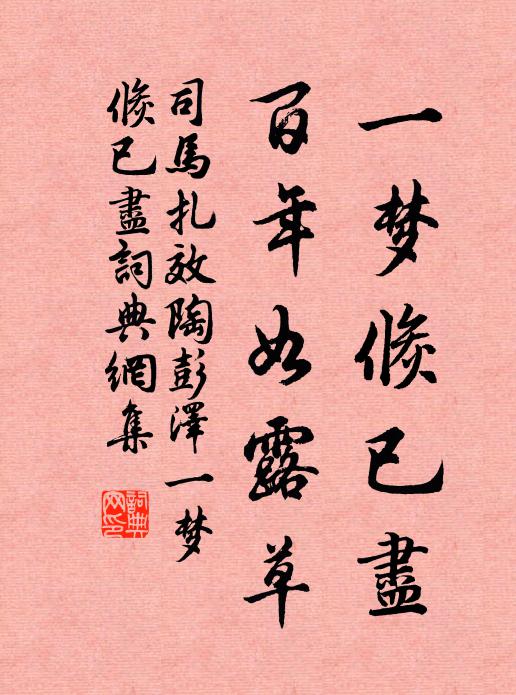 一梦倏已盡
百年如露草
司馬扎效陶彭澤一梦
倏已盡詞典網集
詞典网印